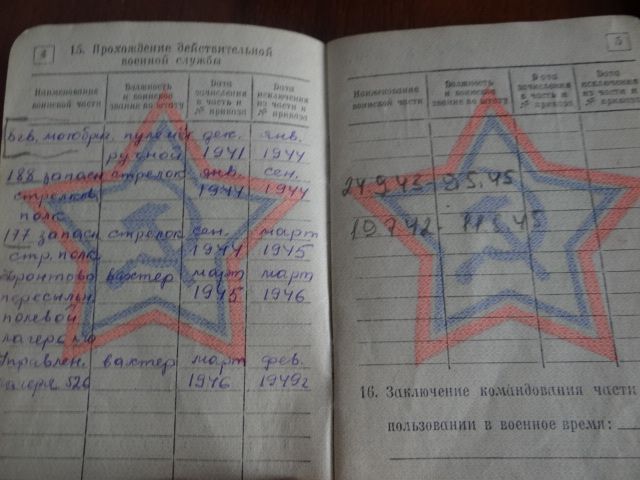 4
15. Прохождение действительной
военной службы
Наименование
воинской части
Должность
и воинское
звание по штату
Дата
зачисления
в часть и
№ приказа
Дата
исключения
из части и
№ приказа
мотобри. пулеметч дек. янв.
ручной 1941 1944
188 запасн стрелок янв. сен.
стрелков 1944 1944
полк
177 запасн стрелок сен. март
стр. полк. 1944 1945
Фронтово вахтер март март
пересыльн. 1945 1946
полевой
лагерь
Управлен. вахтер март фев.
лагеря 526 1946 1949г
5
Наименование
воинской части
Должность
и воинское
звание по штату
Дата
зачисления
в часть и
№ приказа
Дата
исключения
из части и
№ приказа
24.9.43 - 9.5.45
19.7.42 -
16. Заключение командования части
пользовании в военное время: